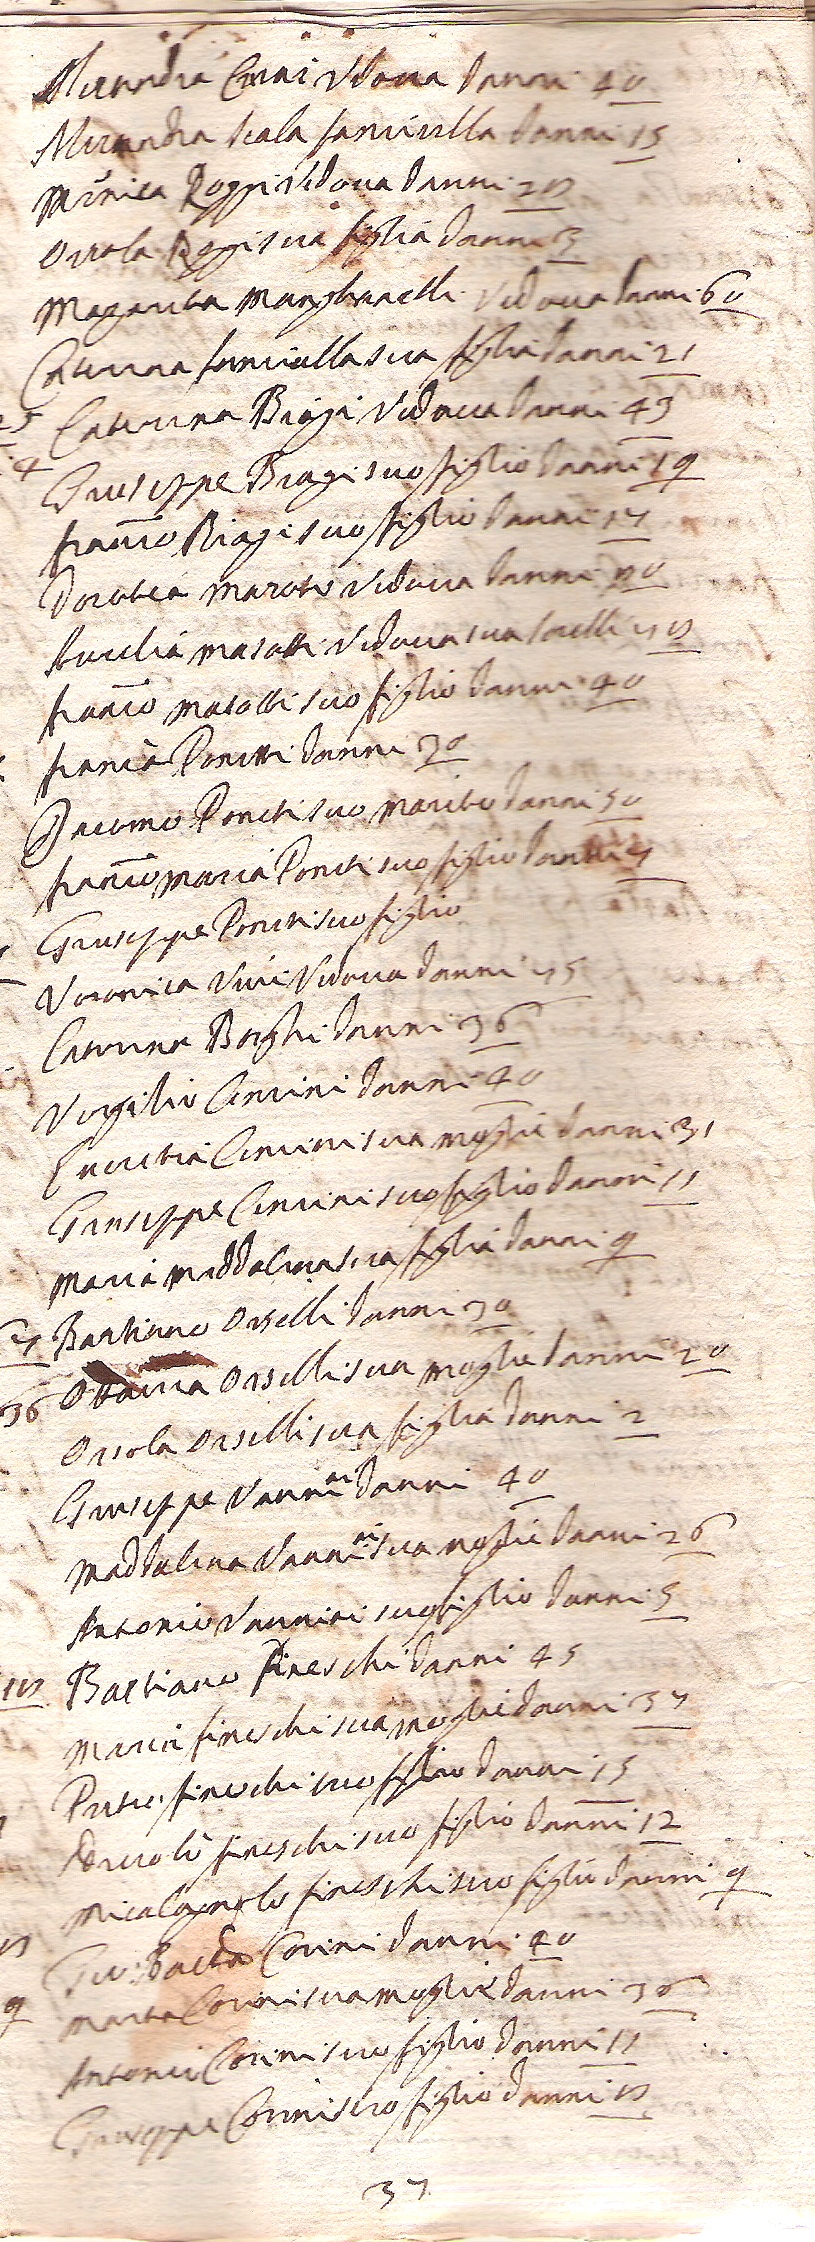 Alexandra Vedova d'anni 40
Alexandra Scala fanciulla d'anni 15
Monica Poggi Vedova d'anni
Orsola Poggi sua figlia d'anni 3
Magarita Vedova d'anni 60
Caterina fanciulla sua figlia d'anni 21
Caterina Biagi Vedova d'anni 45
Giuseppe Biagi suo figlio d'anni 19
Franco Biagi suo figlio d'anni 17
Dorotea Masotti Vedova d'anni
Masotti Vedova sua
Franco Masotti suo figlio d'anni 40
d'anni 30
Jacomo Poneti suo marito d'anni 50
Franco Maria Poneti suo figlio d'anni
Giuseppe Poneti suo figlio
Veronica Vedova d'anni 45
Caterina Borghi d'anni 36
Vergilio Cencini d'anni 40
Cencini sua moglie d'anni 31
Giuseppe Cencini suo figlio d'anni 11
Maria Maddalena sua figlia d'anni 9
Bastiano Orselli d'anni 30
Ottavia Orselli sua moglie d'anni 20
Orsola Orselli sua figlia d'anni 2
Giuseppe Vannini d'anni 40
Maddalena Vannini sua moglie d'anni 26
Antonio Vannini suo figlio d'anni 5
Bastiano Fineschi d'anni 45
Maria fineschi sua moglie d'anni 37
fineschi suo figlio d'anni 15
fineschi suo figlio d'anni 12
Micalagnolo fineschi suo figlio d'anni 9
Gio: Batta Corini d'anni 40
Marta Corini sua moglie d'anni 36
Antonio Corini suo figlio d'anni 11
Giuseppe Corini suo figlio d'anni
37